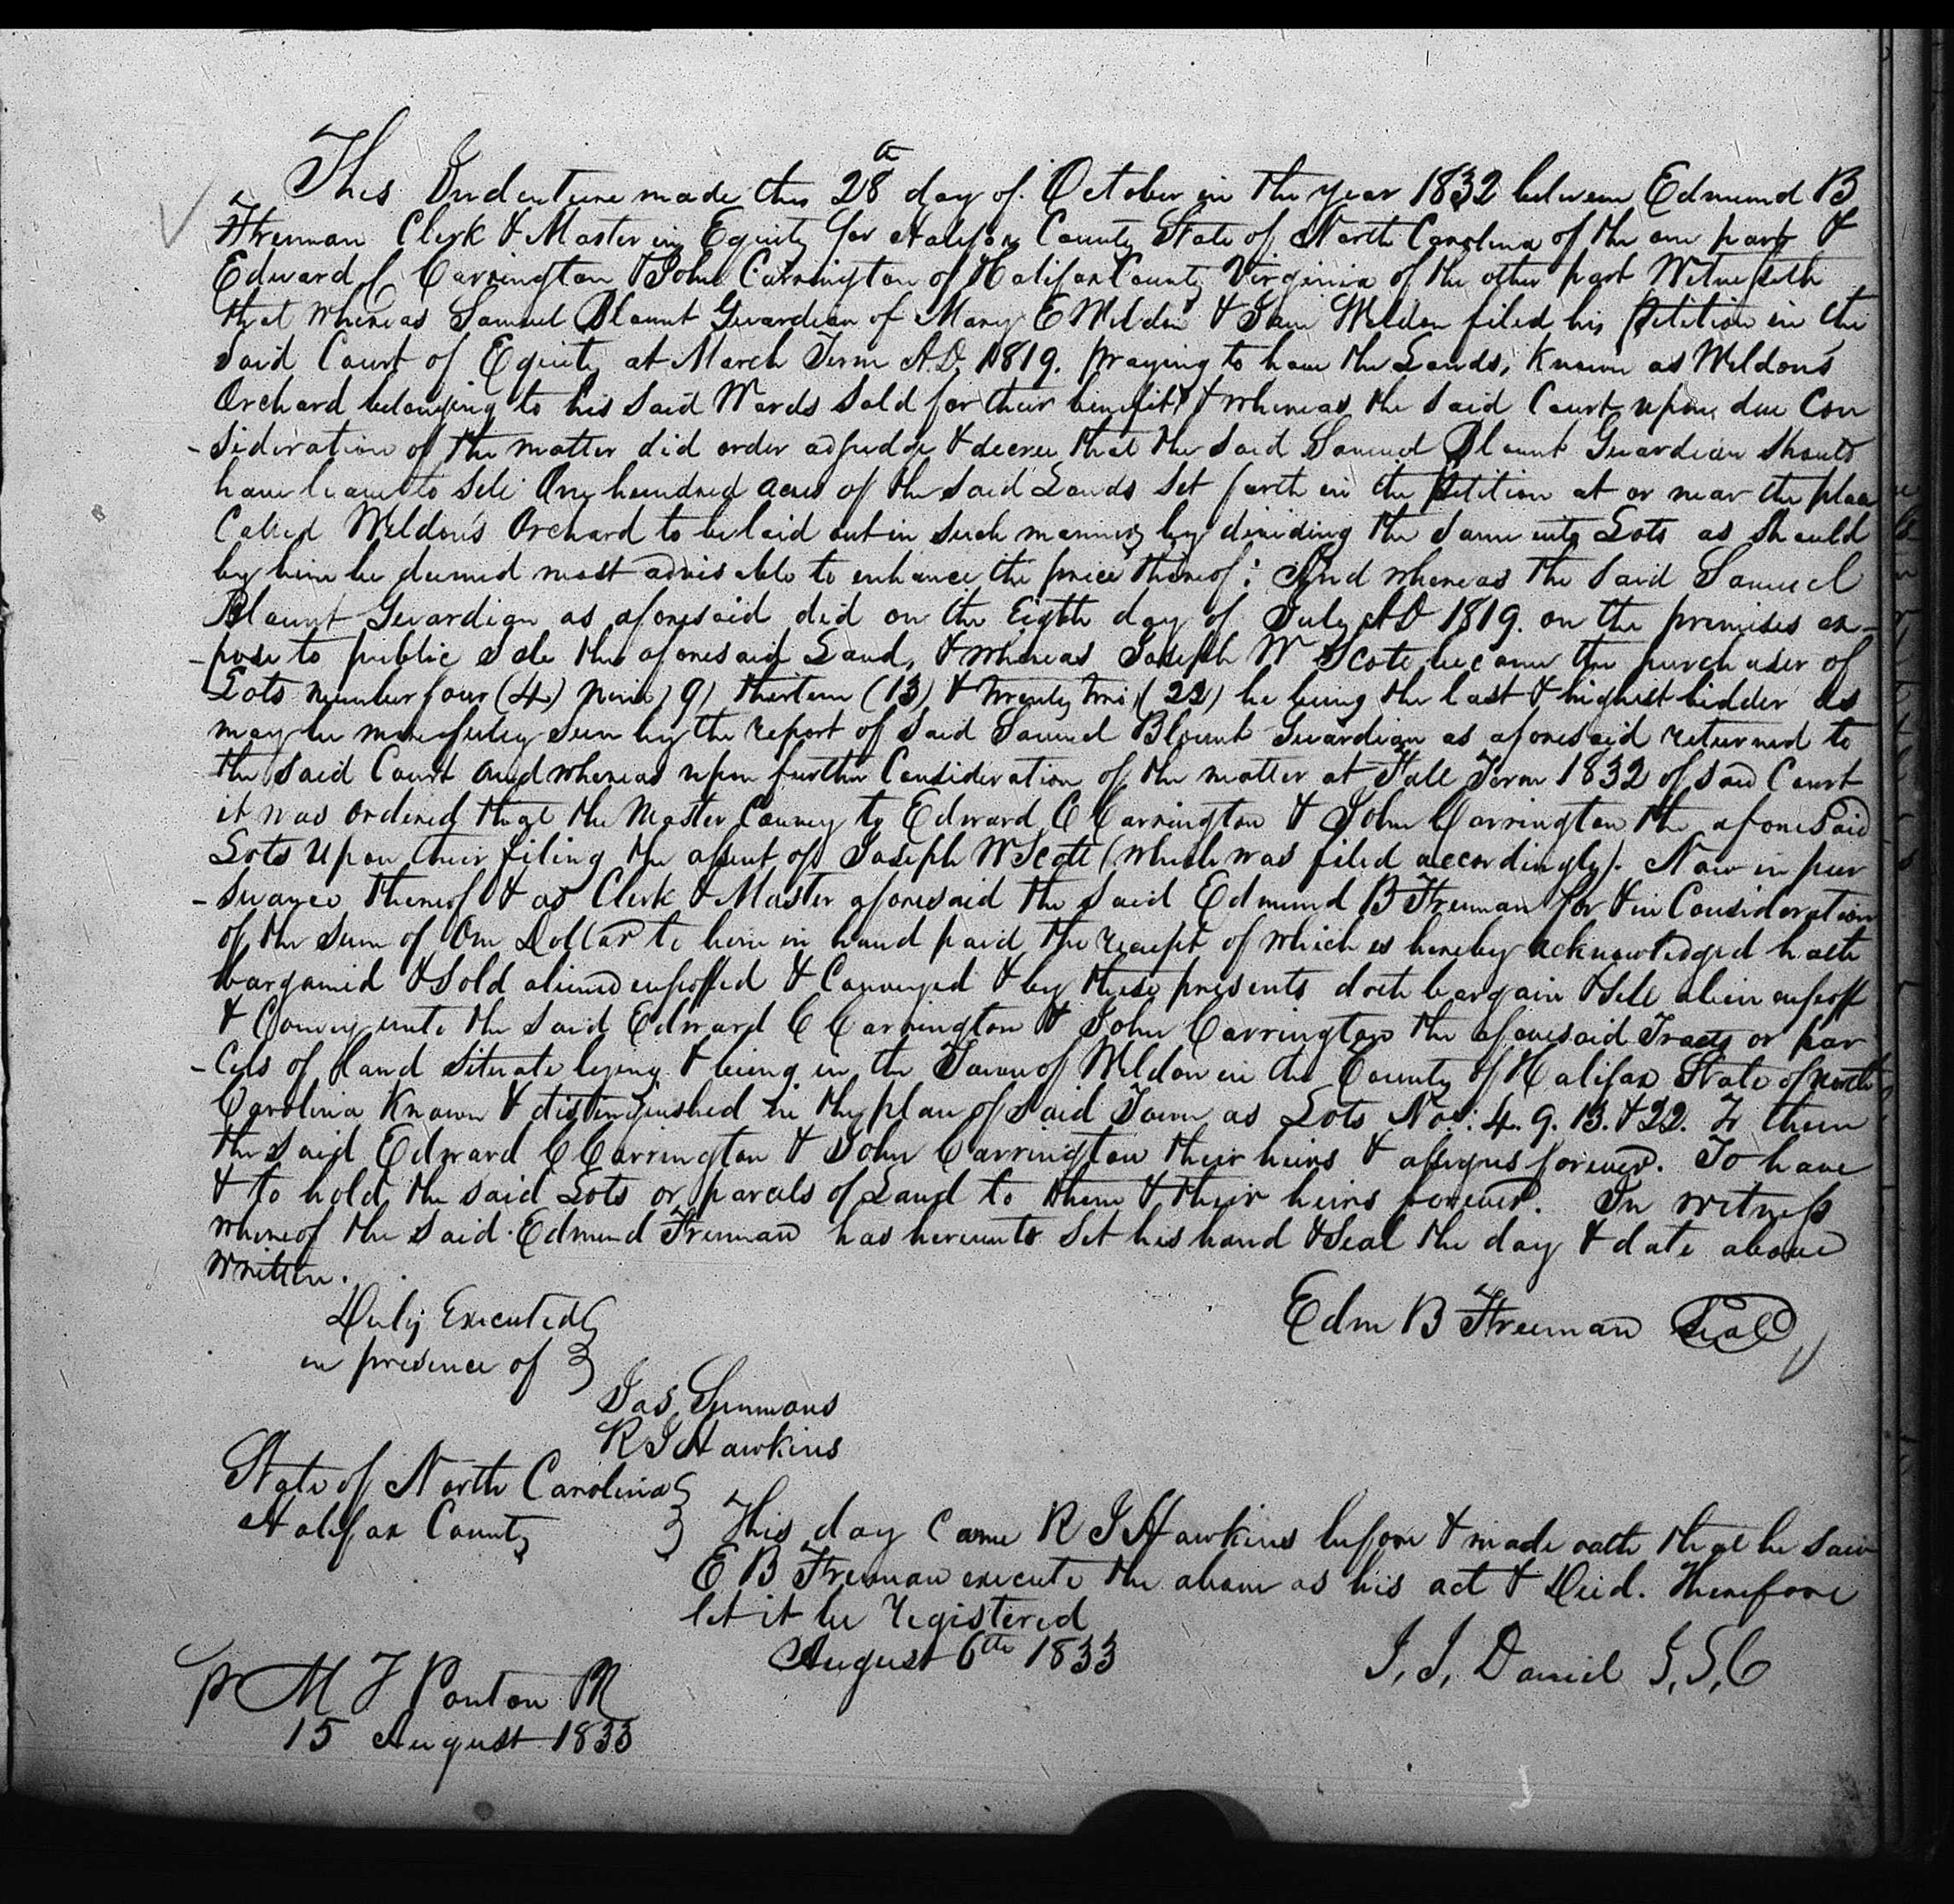 This Indenture made this 28th day of October in the year 1832 between Edmund B
Freeman Clerk & Master in Equity for Halifax County State of North Carolina of the one part &
Edward C Carrington & John Carrington of Halifax County Virginia of the other part Witnesseth
that whereas Samuel Blount Guardian of Mary E Weldon & Sam Weldon filed his Petition in the
Said Court of Equity at March Term A.D. 1819. praying to have the Lands, known as Weldon's
Orchard belonging to his said Wards sold for their benefit & whereas the said Court upon due Con
-sideration of the matter did order adjudge & decree that the Said Samuel Blount Guardian should
have leave to sell One hundred acres of the said Lands set forth in the Petition at or near the place
Called Weldon's Orchard to be laid out in such manner by dividing the same into Lots as should
by him be deemed most advisable to enhance the price thereof: And whereas the said Samuel
Blount Guardian as aforesaid did on the Eighth day of July AD 1819. on the premises ex-
-pose to public Sale the aforesaid Land, & whereas Joseph W Scott became the purchaser of
Lots number four (4) Nine (9) thirteen (13) & twenty two (22) he being the last & highest bidder as
may be more fully seen by the report of said Samuel Blount Guardian as aforesaid returned to
the said Court and whereas upon further Consideration of the matter at Fall Term 1832 of said Court
it was ordered that the Master Convey to Edward C Carrington & John Carrington the aforesaid
Lots Upon their filing the assent of Joseph W Scott (which was filed accordingly). Now in pur
-suance thereof & as Clerk & Master aforesaid the said Edmund B Freeman for & in Consideration
of the sum of One Dollar to him in hand paid the receipt of which is hereby acknowledged hath
bargained & Sold aliened enfeoffed & Conveyed & by these presents doth bargain & sell alien enfeoff
& Convey unto the said Edward C Carrington & John Carrington the aforesaid Tracts or par
-cels of Land situate lying & being in the Town of Weldon in the County of Halifax State of North
Carolina known & distinguished in the plan of said Town as Lots Nos: 4. 9. 13. & 22. To them
the said Edward C Carrington & John Carrington their heirs & assigns forever. To have
& to hold the said Lots or parcels of Land to them & their heirs forever. In witness
whereof the said Edmund Freeman has hereunto set his hand & Seal the day & date above
written.
Edm B Freeman Seal
Duly Executed
in presence of
Jas Simmons
R J Hawkins
State of North Carolina
Halifax County
This day came R J Hawkins before & made oath that he saw
E B Freeman execute the above as his act & Deed. Therefore
let it be registered
August 6th 1833
J, J, Daniel J, S, C
pr M F Ponton PR
15 August 1833